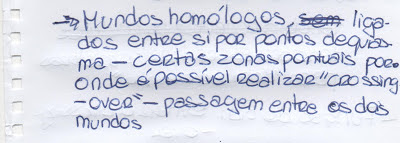 →Mundos homólogos, sem liga-
dos entre si por pontos de quias-
ma – certas zonas pontuais por
onde é possível realizar "crossing
-over" – passagem entre os dos
mundos